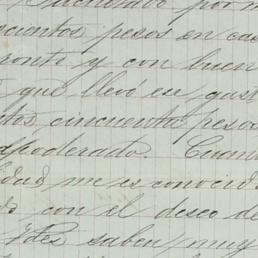 por m
cientos pesos en cas
pronto y con buen
que llevó ese gus
tos cincuenta peso
apoderado. Cuan
lidad me es conocid
do con el deseo de
Vdes saben muy